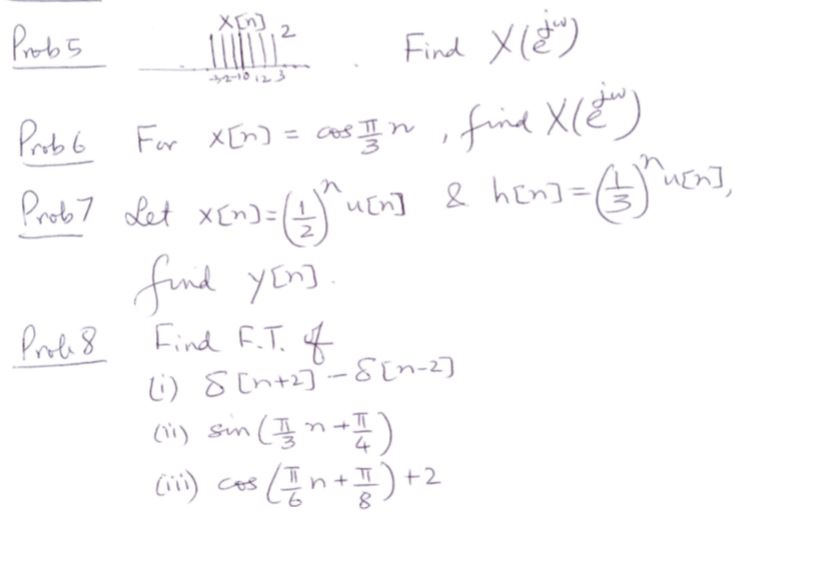 Prob 5 x[n] 2 Find X(e^jω)
-3-2-10 1 2 3
Prob 6 For x[n] = cos π/3 n , find X(e^jω)
Prob 7 Let x[n]=(1/2)^n u[n] & h[n]=(1/3)^n u[n],
find y[n].
Prob 8 Find F.T. of
(i) δ[n+2] - δ[n-2]
(ii) sin(π/3 n + π/4)
(iii) cos(π/6 n + π/8) + 2